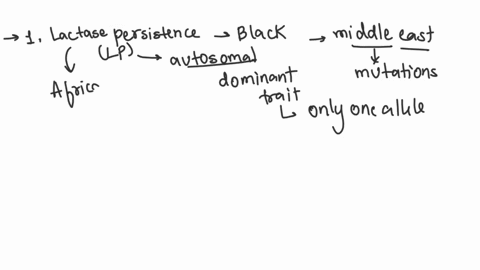 → 1. Lactase persistence → Black → middle east
(LP) → autosomal mutations
Afric dominant
trait
↳ only one allele